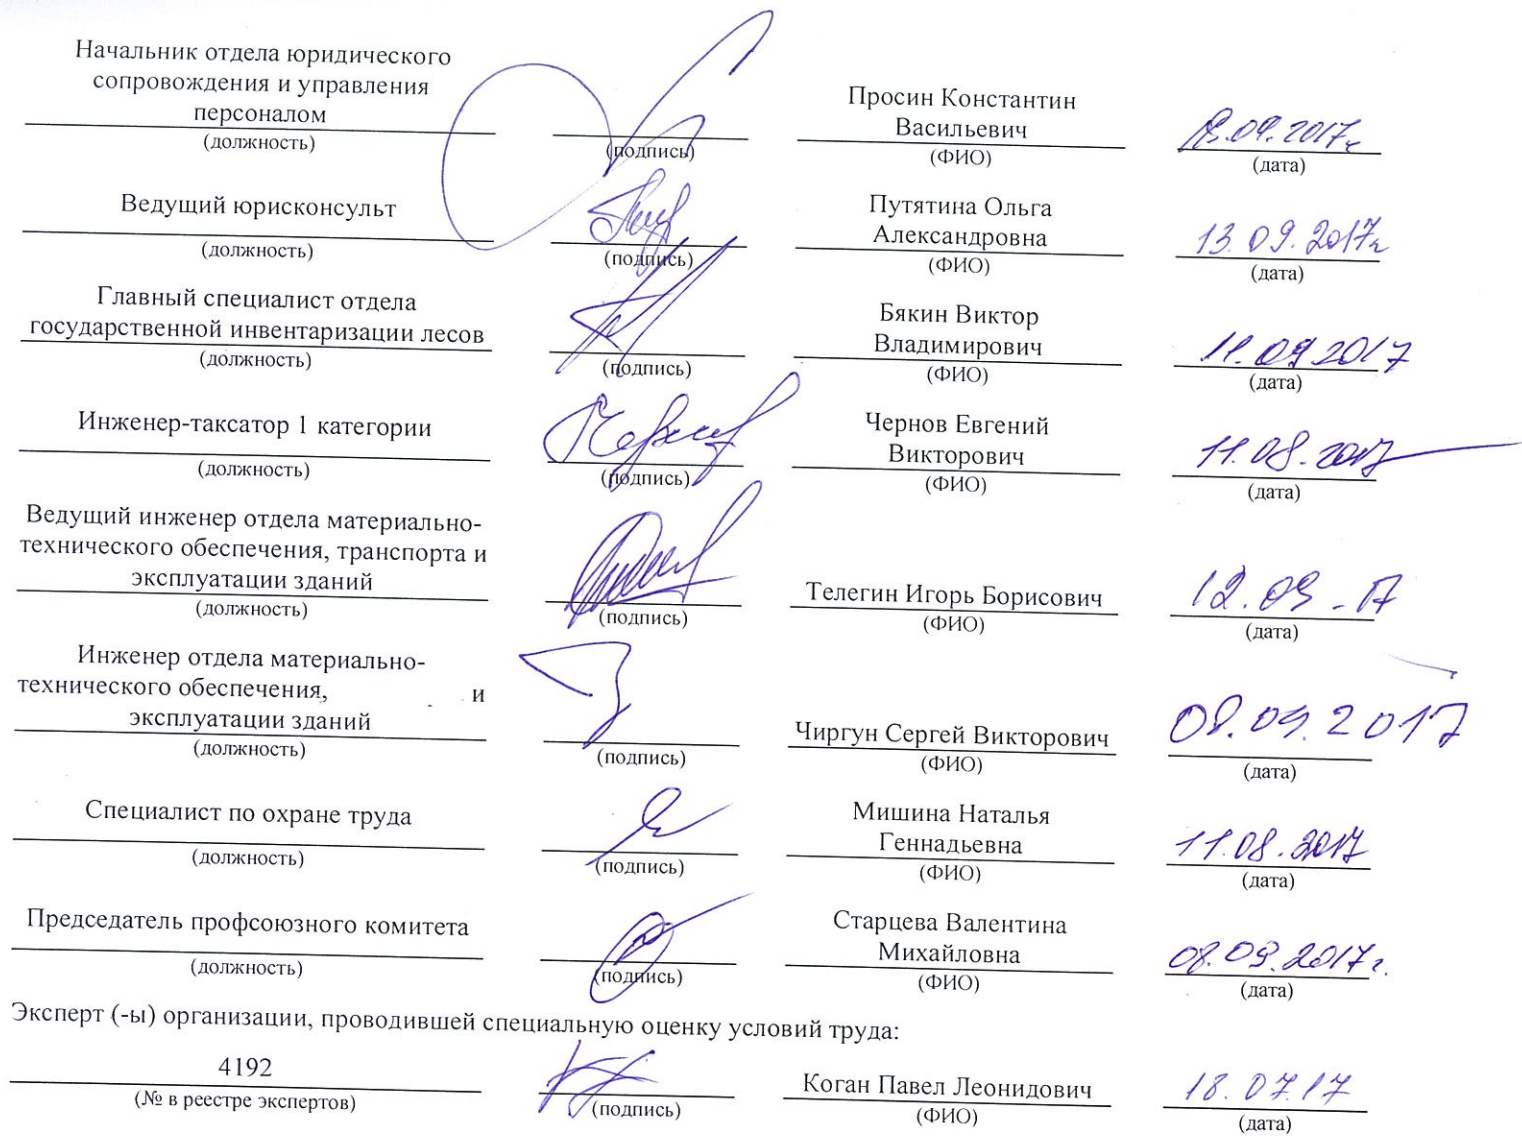 Начальник отдела юридического
сопровождения и управления
персоналом
(должность)
(подпись)
Просин Константин
Васильевич
(ФИО)
.09.2017г
(дата)
Ведущий юрисконсульт
(должность)
(подпись)
Путятина Ольга
Александровна
(ФИО)
13.09.2017г
(дата)
Главный специалист отдела
государственной инвентаризации лесов
(должность)
(подпись)
Бякин Виктор
Владимирович
(ФИО)
11.09.2017
(дата)
Инженер-таксатор 1 категории
(должность)
(подпись)
Чернов Евгений
Викторович
(ФИО)
11.08.2017
(дата)
Ведущий инженер отдела материально-
технического обеспечения, транспорта и
эксплуатации зданий
(должность)
(подпись)
Телегин Игорь Борисович
(ФИО)
12.09-17
(дата)
Инженер отдела материально-
технического обеспечения, и
эксплуатации зданий
(должность)
(подпись)
Чиргун Сергей Викторович
(ФИО)
08.09.2017
(дата)
Специалист по охране труда
(должность)
(подпись)
Мишина Наталья
Геннадьевна
(ФИО)
11.08.2017
(дата)
Председатель профсоюзного комитета
(должность)
(подпись)
Старцева Валентина
Михайловна
(ФИО)
08.09.2017г.
(дата)
Эксперт (-ы) организации, проводившей специальную оценку условий труда:
4192
(№ в реестре экспертов)
(подпись)
Коган Павел Леонидович
(ФИО)
18.07.17
(дата)